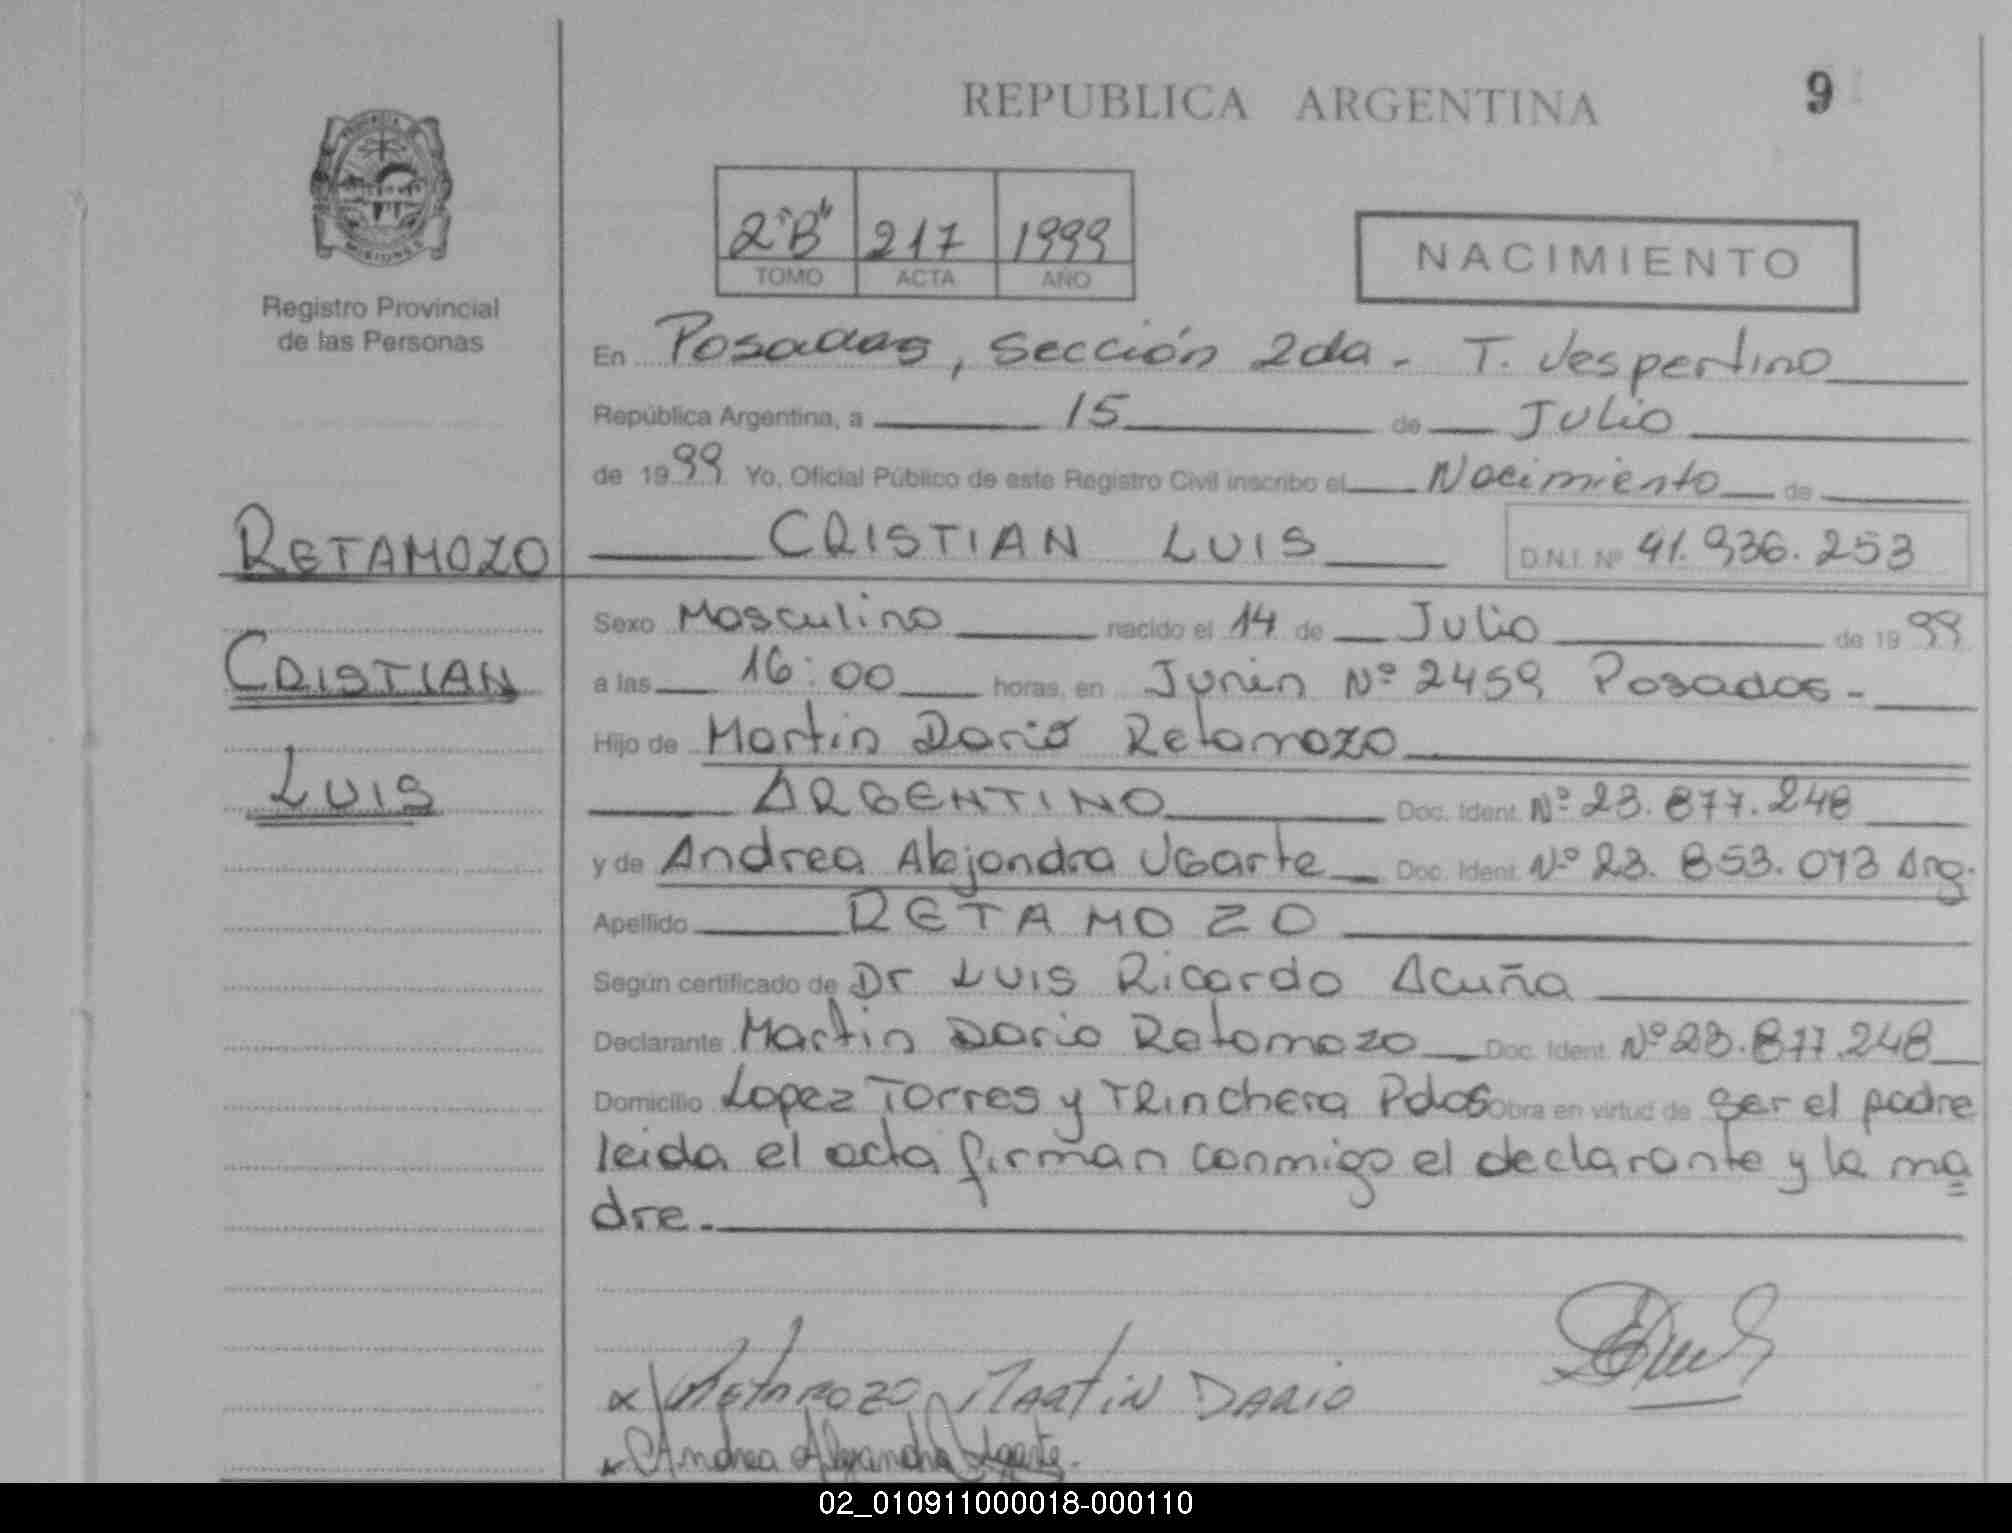 REPUBLICA ARGENTINA
9
PROVINCIA DE
MISIONES
Registro Provincial
de las Personas
2"B" 217 1999
TOMO ACTA AÑO
NACIMIENTO
En Posadas, Sección 2da - T. Vespertino
República Argentina, a 15 de Julio
de 1999 Yo, Oficial Público de este Registro Civil inscribo el Nacimiento de
RETAMOZO
CRISTIAN LUIS D.N.I. Nº 41.936.253
Sexo Masculino nacido el 14 de Julio de 1999
CRISTIAN
a las 16:00 horas, en Junin Nº 2459 Posadas-
Hijo de Martin Dario Retamozo
LUIS
ARGENTINO Doc. Ident. Nº 23.877.248
y de Andrea Alejandra Ugarte Doc. Ident. Nº 23.853.073 Arg.
Apellido RETAMOZO
Según certificado de Dr Luis Ricardo Acuña
Declarante Martin Dario Retamozo Doc. Ident. Nº 23.877.248
Domicilio Lopez Torres y Trinchera Pdas Obra en virtud de ser el padre
leida el acta firman conmigo el declarante y la ma
dre.
x Retamozo Martin Dario
x Andrea Alejandra Ugarte.
02_010911000018-000110